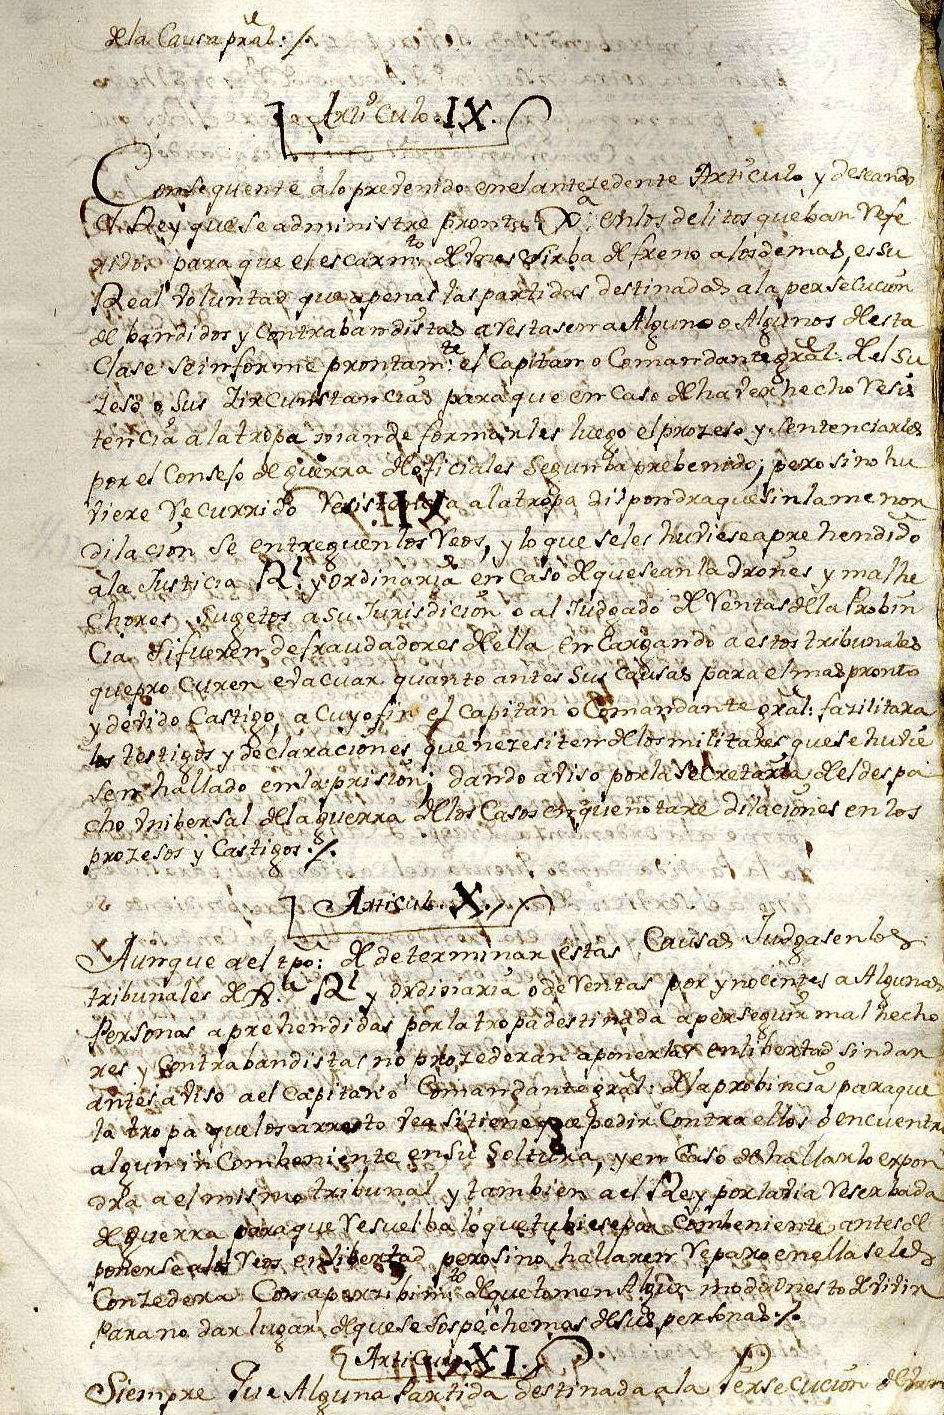 de la Causa pral: /.
Articulo IX.
Consequente alo prevenido enel antezedente Articulo, y deseando
el Rey que se administre pronta en los delitos que ban refe
ridos para que el escarmto de unos sirba de freno a los demas, es su
Real Voluntad que apenas las partidas destinadas ala persecucion
de bandidos y contrabandistas arrestasen a Alguno o Algunos de esta
Clase se informe prontamte el Capitan o Comandante gral. del su
zeso o sus zircunstancias para que en caso de haver hecho resis
tencia a la tropa mande formarles luego el prozeso y sentenciarlos
por el Consejo de guerra de oficiales segun ba prebenido; pero si no hu
viere recurrido resistencia a la tropa dispondra que sin la menor
dilacion se entreguen los reos, y lo que se les huviese aprehendido
a la Justicia Rl. y ordinaria en caso de que sean ladrones y malhe
chores sugetos a su Jurisdicion o al Judgado de Rentas de la Probin
cia si fueren defraudadores de ella encargando a estos tribunales
que procuren evacuar quanto antes sus causas para el mas pronto
y devido Castigo, a cuyo fin el Capitan o Comandante gral: fazilitara
los testigos y declaraciones que nezesiten de los militares que se huvie
sen hallado en la prision; dando aviso por la secretaria del despa
cho Unibersal de la guerra de los Casos en que notare dilaciones en los
prozesos y Castigos. /.
Articulo. X.
Aunque ael tpo: de determinar estas Causas Judgasen los
tribunales de Rl y ordinaria o de Rentas por ynocentes a Algunas
Personas aprehendidas por la tropa destinada a perseguir malhecho
res y contrabandistas no prozederan a ponerlas en libertad sin dar
antes aviso ael Capitan o Comandante gral: de la probincia para que
la tropa que los arresto vea si tiene que pedir Contra ellos o encuentra
algun incombeniente en su soltura, y en caso de hallarlo expon
dra a el mismo tribunal y tambien a el Rey por la via reserbada
de guerra para que resuelba lo que tubiese por combeniente antes de
ponerse a los reos en libertad pero si no hallaren reparo en ella se les
Conzedera Con aperzibimto de que tomen Algun modo onesto de vivir
Para no dar lugar de que se sospechemos de sus personas. /.
Articulo XI.
Siempre que Alguna Partida destinada a la Persecucion de